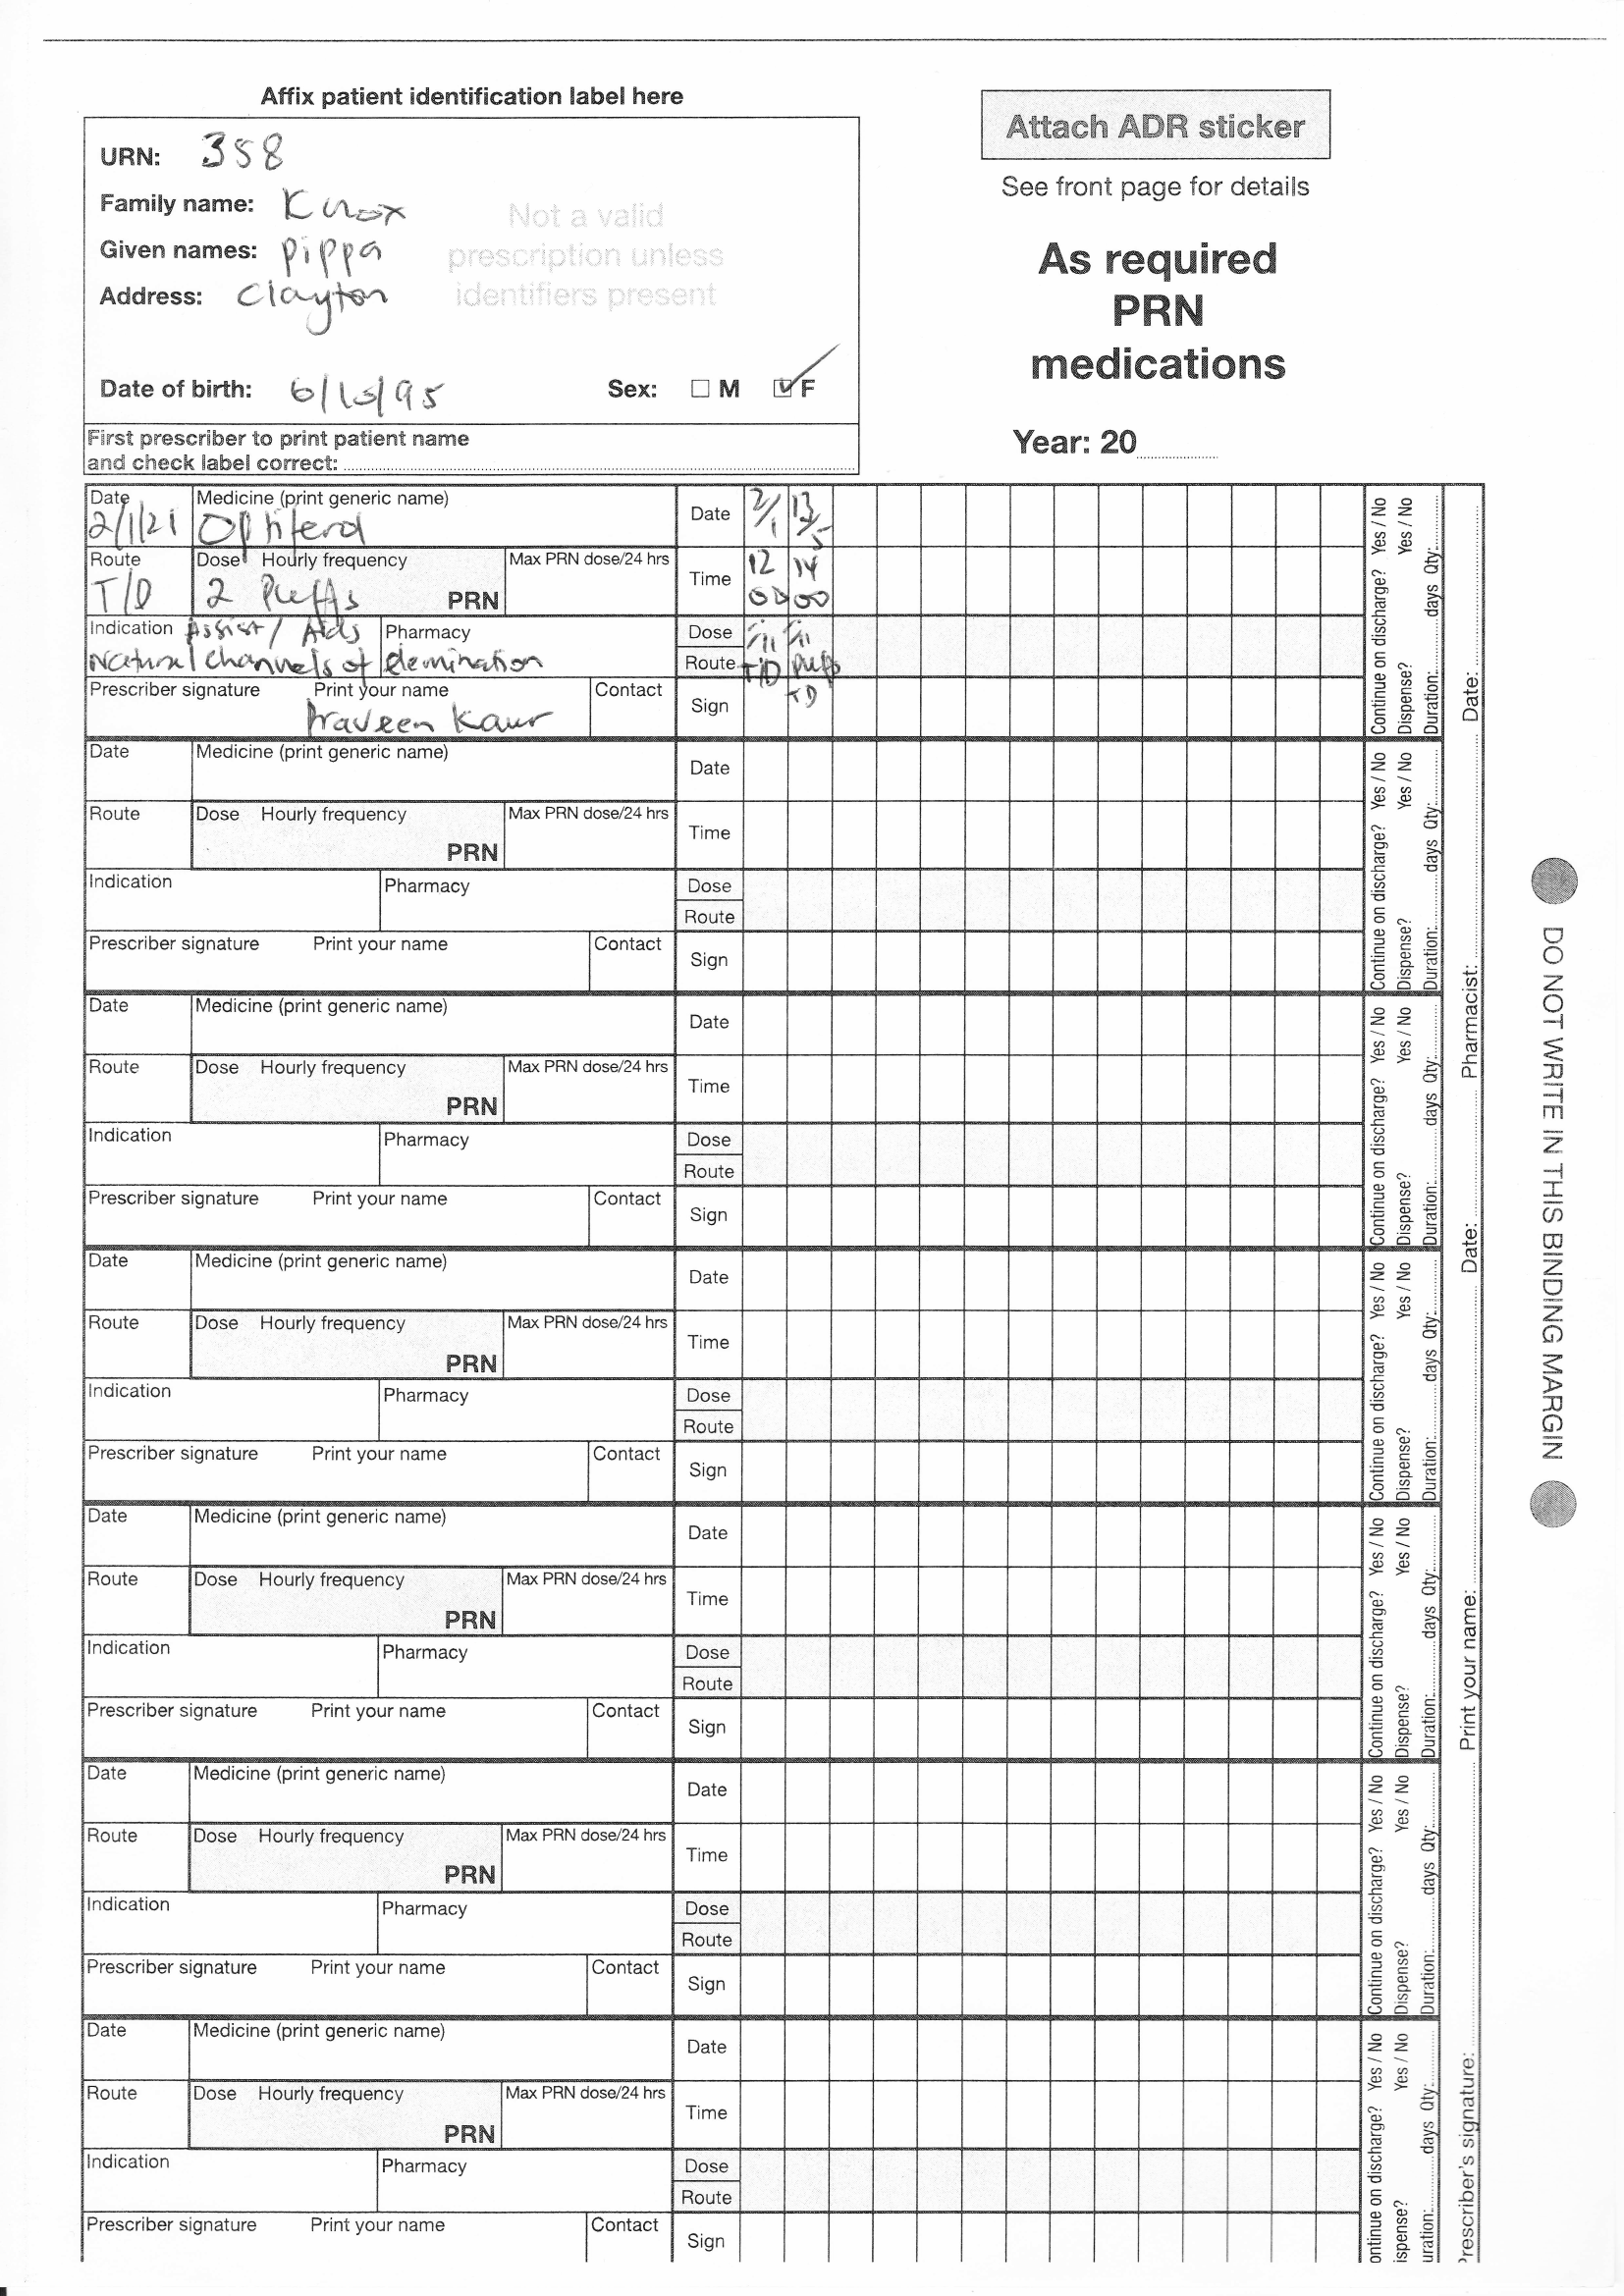 Affix patient identification label here
URN: 358
Family name: Knox
Given names: Pippa
Address: Clayton
Not a valid
prescription unless
identifiers present
Date of birth: 6/10/95 Sex: M F
First prescriber to print patient name
and check label correct:
Attach ADR sticker
See front page for details
As required
PRN
medications
Year: 20
Date Medicine (print generic name) Date 2/1 13/5
2/1/21
Route Dose Hourly frequency Max PRN dose/24 hrs Time 12 14
T/D 2 Puffs PRN 00 00
Indication Assist / Aids Pharmacy Dose
Natural channels of elemination Route T/D Puffs
TD
Prescriber signature Print your name Contact Sign
Praveen Kaur
Continue on discharge? Yes / No
Dispense? Yes / No
Duration: days Qty:
Date Medicine (print generic name) Date
Route Dose Hourly frequency Max PRN dose/24 hrs Time
PRN
Indication Pharmacy Dose
Route
Prescriber signature Print your name Contact Sign
Continue on discharge? Yes / No
Dispense? Yes / No
Duration: days Qty:
Date Medicine (print generic name) Date
Route Dose Hourly frequency Max PRN dose/24 hrs Time
PRN
Indication Pharmacy Dose
Route
Prescriber signature Print your name Contact Sign
Continue on discharge? Yes / No
Dispense? Yes / No
Duration: days Qty:
Date Medicine (print generic name) Date
Route Dose Hourly frequency Max PRN dose/24 hrs Time
PRN
Indication Pharmacy Dose
Route
Prescriber signature Print your name Contact Sign
Continue on discharge? Yes / No
Dispense? Yes / No
Duration: days Qty:
Date Medicine (print generic name) Date
Route Dose Hourly frequency Max PRN dose/24 hrs Time
PRN
Indication Pharmacy Dose
Route
Prescriber signature Print your name Contact Sign
Continue on discharge? Yes / No
Dispense? Yes / No
Duration: days Qty:
Date Medicine (print generic name) Date
Route Dose Hourly frequency Max PRN dose/24 hrs Time
PRN
Indication Pharmacy Dose
Route
Prescriber signature Print your name Contact Sign
Continue on discharge? Yes / No
Dispense? Yes / No
Duration: days Qty:
Date Medicine (print generic name) Date
Route Dose Hourly frequency Max PRN dose/24 hrs Time
PRN
Indication Pharmacy Dose
Route
Prescriber signature Print your name Contact Sign
ontinue on discharge? Yes / No
ispense? Yes / No
uration: days Qty:
rescriber's signature: Print your name: Date: Pharmacist: Date:
DO NOT WRITE IN THIS BINDING MARGIN